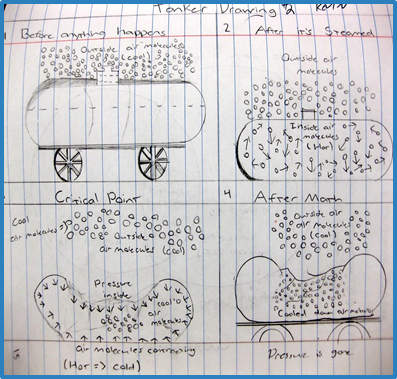 Tanker Drawing 2
Before anything Happens
Outside air
molecules
(cool)
2
After it's Steamed
Outside air
molecules
Inside air
molecules
(Hot)
Critical Point
Cool
air molecules
Outside
air molecules (cool)
Pressure
inside
"cool"
air
molecules
air molecules
(Hot => cold)
4
After Math
Outside air
air molecules
(cool)
Cooled down air
Pressure is gone